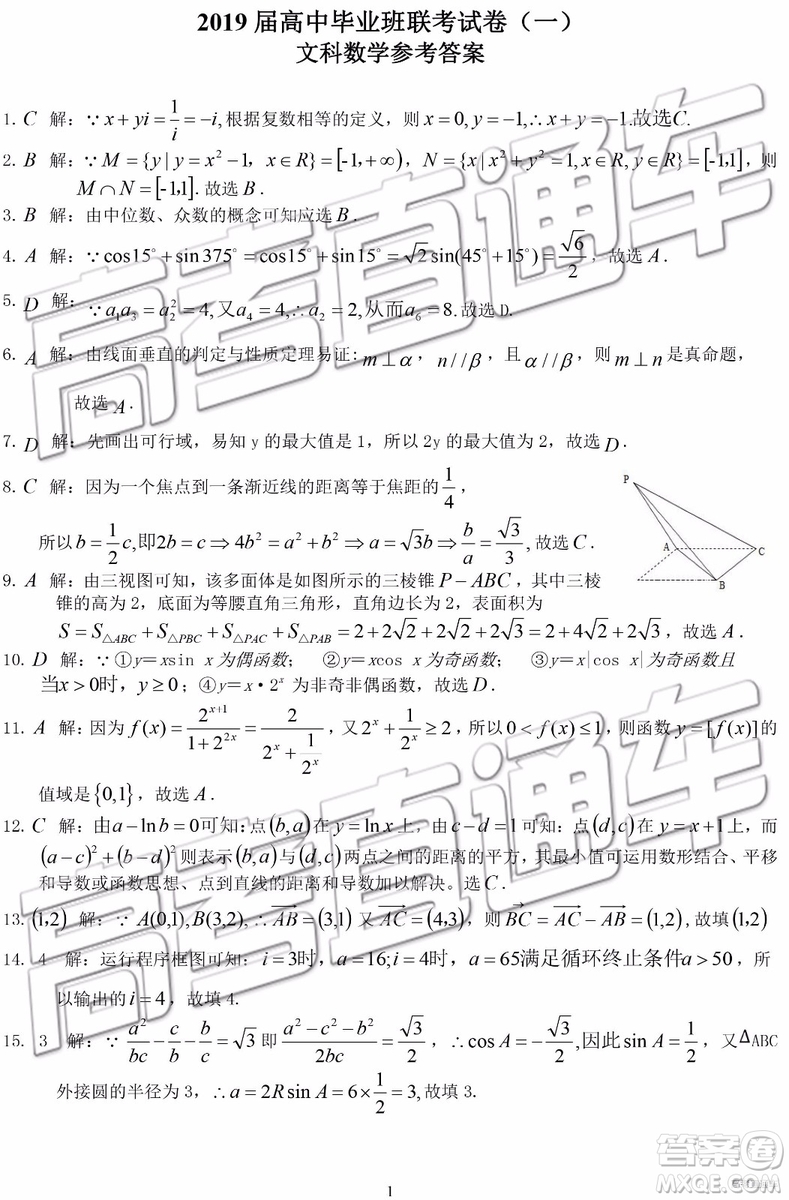 2019 届高中毕业班联考试卷（一）
文科数学参考答案
1. C 解：∵ x + yi = 1/i = −i, 根据复数相等的定义，则 x = 0, y = −1, ∴ x + y = −1. 故选C.
2. B 解：∵ M = {y | y = x² − 1，x ∈ R} = [-1, +∞)，N = {x | x² + y² = 1, x ∈ R, y ∈ R} = [-1,1]，则
M ∩ N = [-1,1]. 故选 B．
3. B 解：由中位数、众数的概念可知应选 B．
4. A 解：∵ cos15° + sin 375° = cos15° + sin15° = √2 sin(45° + 15°) = √6/2，故选 A．
5. D 解：∵ a₁a₃ = a₂² = 4, 又 a₄ = 4, ∴ a₂ = 2, 从而 a₆ = 8. 故选 D.
6. A 解：由线面垂直的判定与性质定理易证：m ⊥ α，n // β，且 α // β，则 m ⊥ n 是真命题，
故选 A．
7. D 解：先画出可行域，易知 y 的最大值是 1，所以 2y 的最大值为 2，故选 D．
8. C 解：因为一个焦点到一条渐近线的距离等于焦距的 1/4，
所以 b = 1/2 c, 即 2b = c ⇒ 4b² = a² + b² ⇒ a = √3b ⇒ b/a = √3/3, 故选 C．
P
A
C
B
9. A 解：由三视图可知，该多面体是如图所示的三棱锥 P − ABC，其中三棱
锥的高为 2，底面为等腰直角三角形，直角边长为 2，表面积为
S = S△ABC + S△PBC + S△PAC + S△PAB = 2 + 2√2 + 2√2 + 2√3 = 2 + 4√2 + 2√3，故选 A．
10. D 解：∵ ①y＝xsin x 为偶函数； ②y＝xcos x 为奇函数； ③y＝x|cos x| 为奇函数且
当 x > 0时，y ≥ 0；④y＝x·2ˣ 为非奇非偶函数，故选 D．
11. A 解：因为 f(x) = 2^(x+1)/(1 + 2^(2x)) = 2/(2^x + 1/2^x)，又 2^x + 1/2^x ≥ 2，所以 0 < f(x) ≤ 1，则函数 y = [f(x)] 的
值域是 {0,1}，故选 A．
12. C 解：由 a − ln b = 0 可知：点 (b, a) 在 y = ln x 上，由 c − d = 1 可知：点 (d, c) 在 y = x + 1 上，而
(a − c)² + (b − d)² 则表示 (b, a) 与 (d, c) 两点之间的距离的平方，其最小值可运用数形结合、平移
和导数或函数思想、点到直线的距离和导数加以解决。选 C．
13. (1,2) 解：∵ A(0,1), B(3,2), ∴ AB = (3,1) 又 AC = (4,3)，则 BC = AC − AB = (1,2)，故填 (1,2)
14. 4 解：运行程序框图可知：i = 3时，a = 16; i = 4时，a = 65满足循环终止条件 a > 50，所
以输出的 i = 4，故填 4.
15. 3 解：∵ a²/bc − c/b − b/c = √3 即 (a² − c² − b²)/2bc = √3/2 ，∴ cos A = −√3/2, 因此 sin A = 1/2 ，又△ABC
外接圆的半径为 3，∴ a = 2R sin A = 6 × 1/2 = 3, 故填 3.
1
高考直通车
高考直通车
答案圈